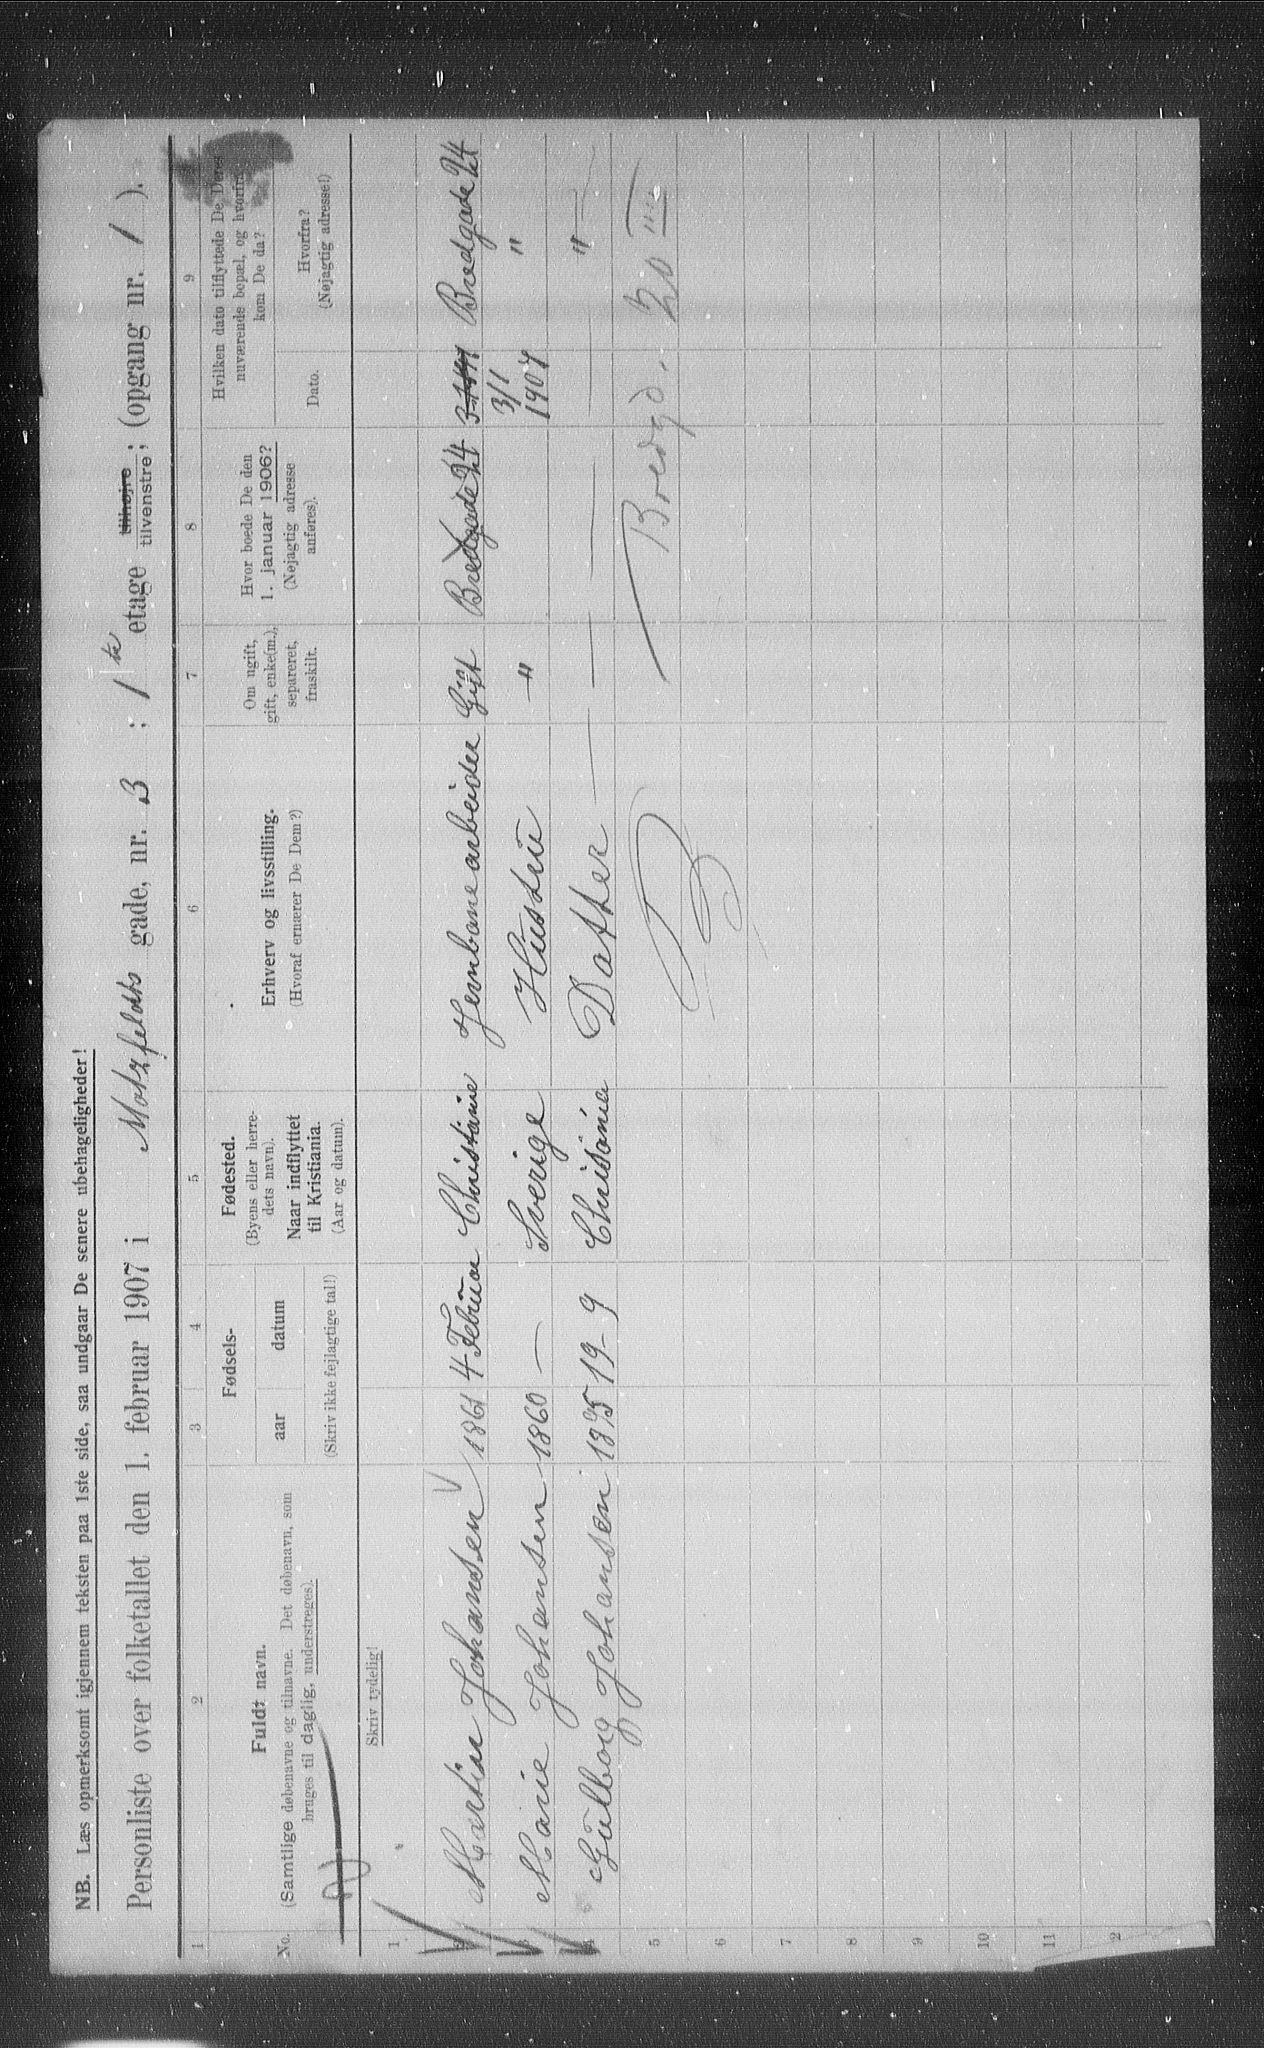 NB. Læs opmerksomt igjennem teksten paa 1ste side, saa undgaar De senere ubehageligheder!
Personliste over folketallet den 1. februar 1907 i Motzfeldts gade, nr. 3 ; 1 te etage tilhøjre tilvenstre; (opgang nr. 1 ).
1 2 3 4 5 6 7 8 9
No.
Fuldt navn.
(Samtlige døbenavne og tilnavne. Det døbenavn, som
bruges til daglig, understreges).
Fødsels-
aar datum
(Skriv ikke fejlagtige tal!)
Fødested.
(Byens eller herre-
dets navn).
Naar indflyttet
til Kristiania.
(Aar og datum).
Erhverv og livsstilling.
(Hvoraf ernærer De Dem?)
Om ugift,
gift, enke(m.),
separeret,
fraskilt.
Hvor boede De den
1. januar 1906?
(Nøjagtig adresse
anføres).
Hvilken dato tilflyttede De Deres
nuværende bopæl, og hvorfra
kom De da?
Dato.
Hvorfra?
(Nøjagtig adresse!)
Skriv tydelig!
1
2 Martin Johansen 1861 4 Februar Christiania Jernbanearbeider Gift Bredgade 24 Bredgade 24
3 Marie Johansen 1860 — Sverige Hustru " 3/1 1907 "
4 Gulborg Johansen 1895 19-9 Chrisania Datter — — — "
Bredgd. 20 III
5
6
7
8
9
10
11
2